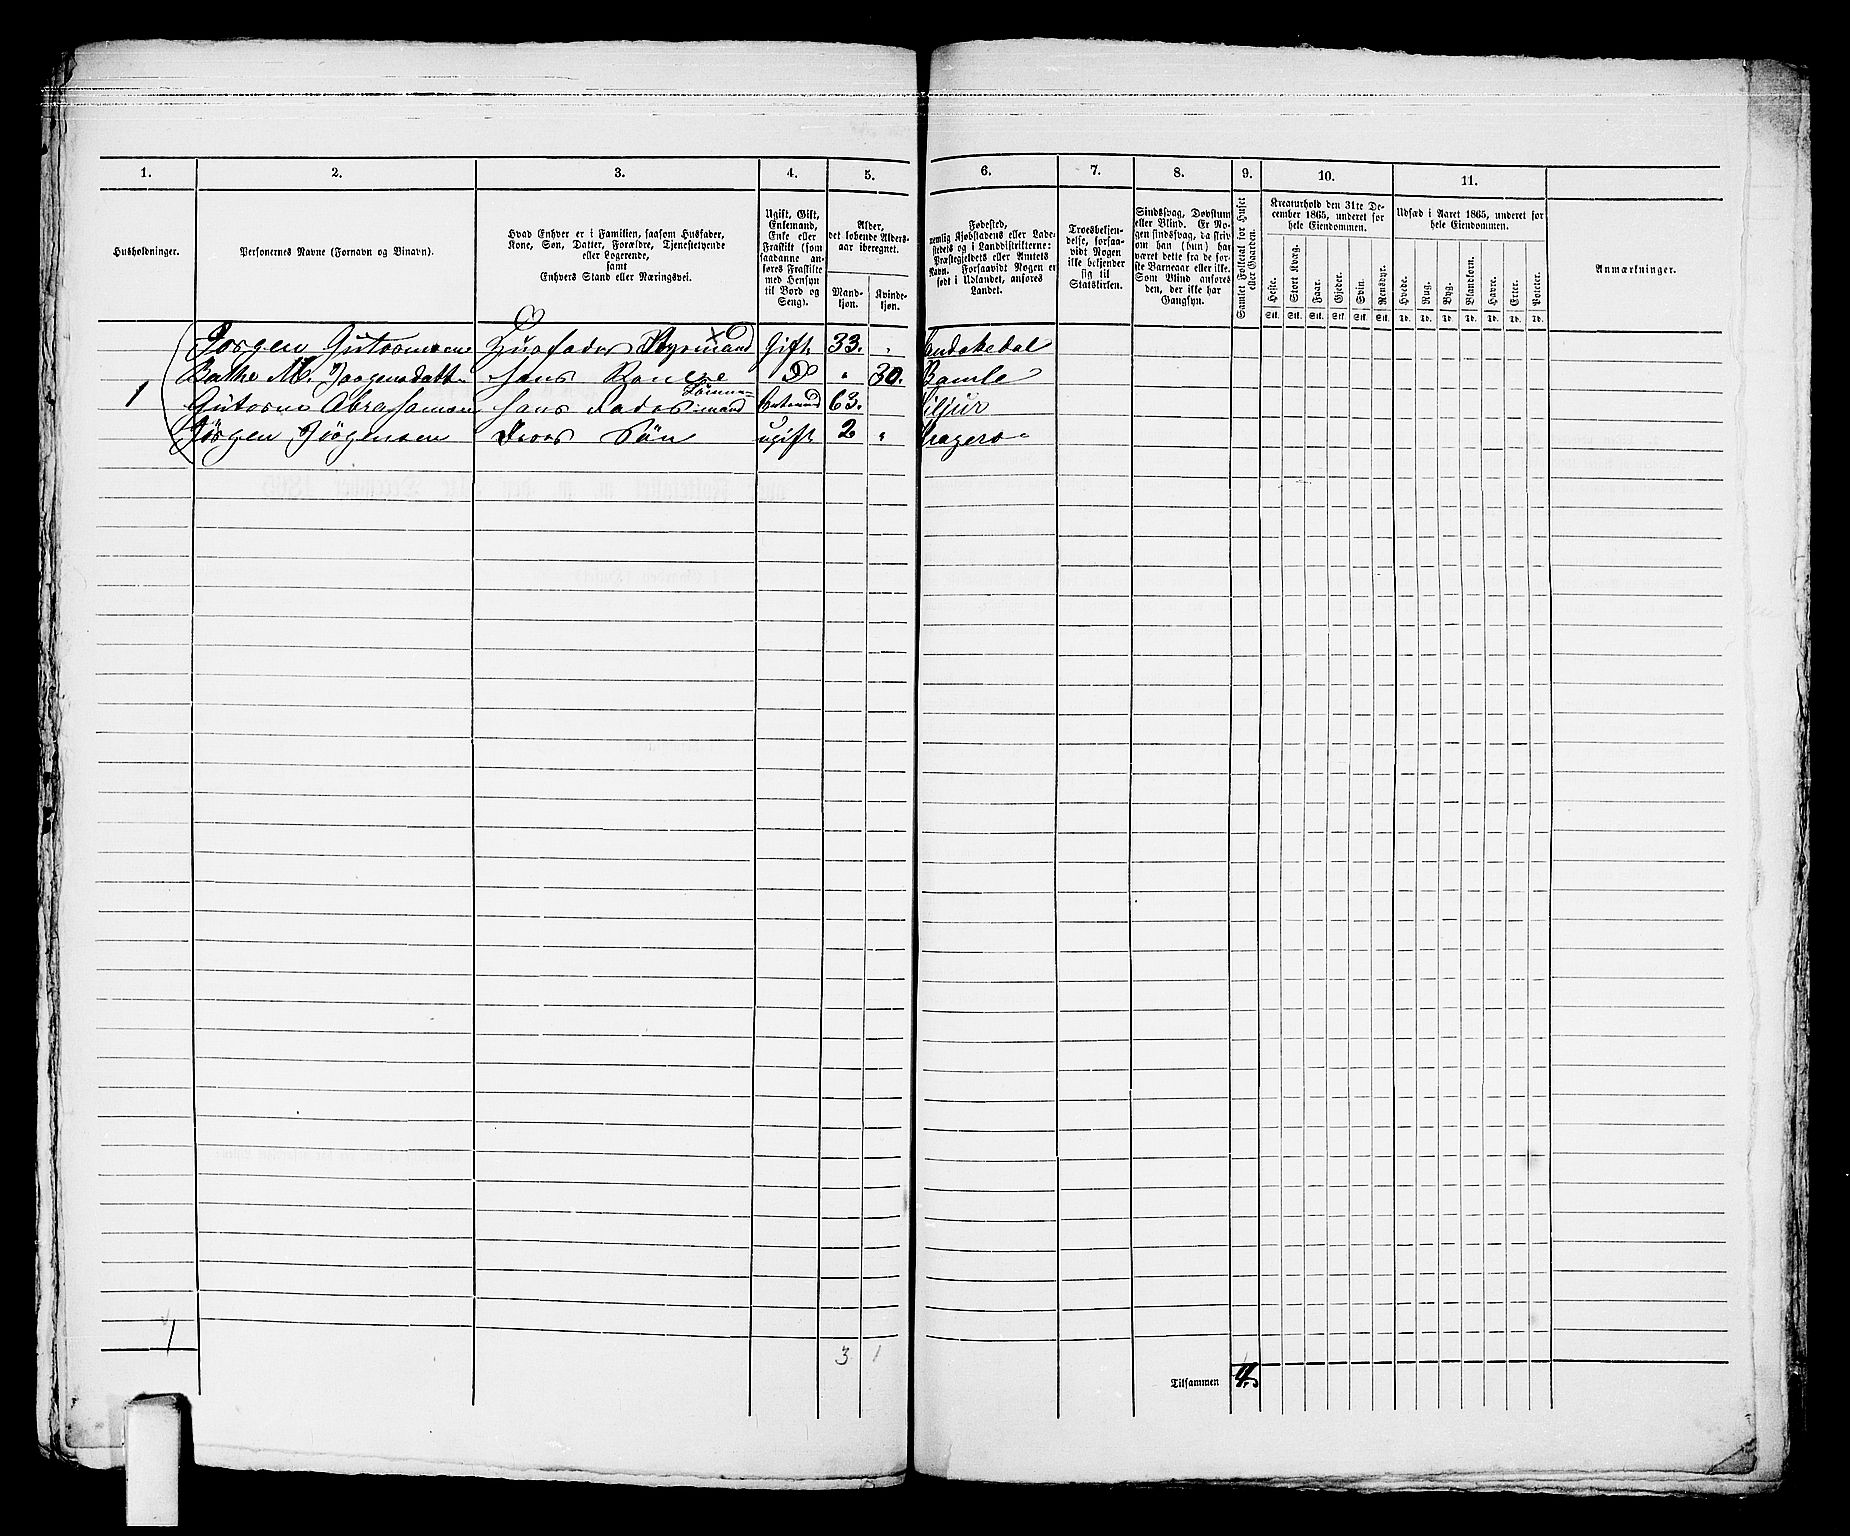 1. 2. 3. 4. 5. 6. 7. 8. 9. 10. 11.
Husholdninger.
Personernes Navne (Fornavn og Binavn).
Hvad Enhver er i Familien, saasom Husfader,
Kone, Søn, Datter, Forældre, Tjenestetyende
eller Logerende,
samt
Enhvers Stand eller Næringsvei.
Ugift, Gift,
Enkemand,
Enke eller
Fraskilt (som
saadanne an-
føres Fraskilte
med Hensyn
til Bord og
Seng).
Alder,
det løbende Alders-
aar iberegnet.
Mand-
kjøn.
Kvinde-
kjøn.
Fødested,
nemlig Kjøbstadens eller Lade-
stedets og i Landdistrikterne:
Præstegjeldets eller Amtets
Navn. Forsaavidt Nogen er
født i Udlandet, anføres
Landet.
Troesbekjen-
delse, forsaa-
vidt Nogen
ikke bekjender
sig til
Statskirken.
Sindssvag, Døvstum
eller Blind. Er No-
gen sindssvag, da skriv
om han (hun) har
været dette fra de før-
ste Barneaar eller ikke.
Som Blind anføres
den, der ikke har
Gangsyn.
Samlet Folketal for Huset
eller Gaarden.
Kreaturhold den 31te De-
cember 1865, underet for
hele Eiendommen.
Heste. Stort Kvæg. Faar. Gjeder. Svin. Rensdyr.
Stk. Stk. Stk. Stk. Stk. Stk.
Udsæd i Aaret 1865, underet for
hele Eiendommen.
Hvede. Rug. Byg. Blandkorn. Havre. Erter. Poteter.
Td. Td. Td. Td. Td. Td. Td.
Anmærkninger.
Jørgen Gutormsen Huusfader Styrmand Gift 33. Sandøkedal
M. Jørgensdatt hans Kone Do 30. Bamle
1 Gutorm Abrahamsen hans Fader Tømmermand Enkemand 63. Siljur
Jørgen Jörgensen Deres Sön ugift 2 Kragerø
1 3 1
Tilsammen 4.